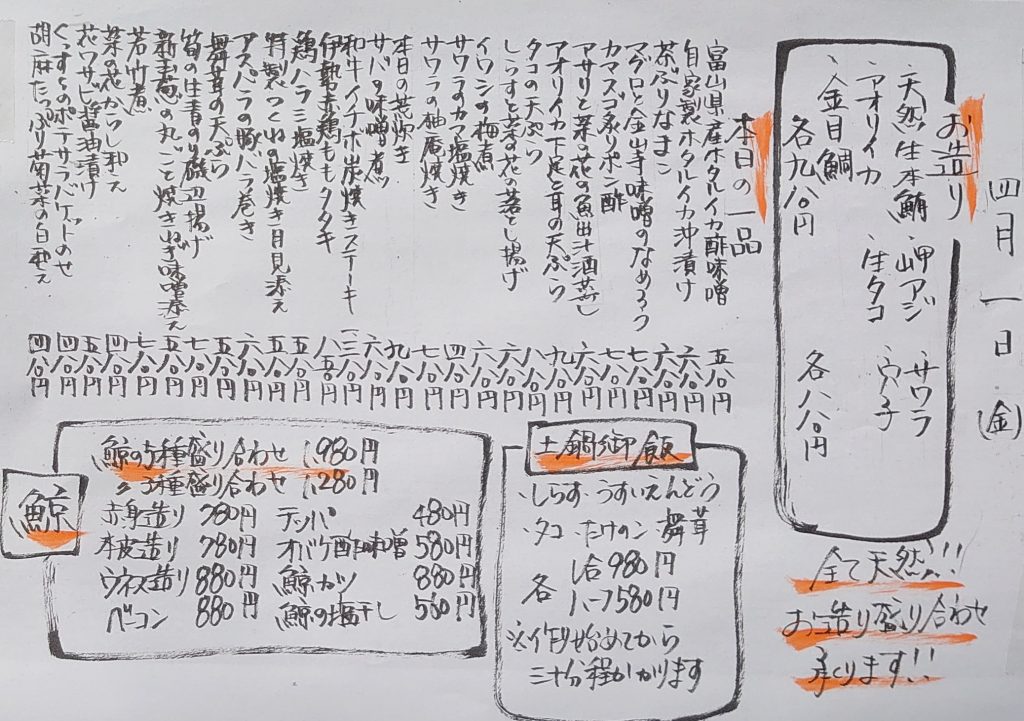 四月一日(金)
お造り
、天然生本鮪 、岬アジ 、サワラ
、アオリイカ 、生タコ 、穴子
、金目鯛
各九八〇円 各八八〇円
全て天然!!
お造り盛り合わせ
承ります!!
本日の一品
富山県産ホタルイカ酢味噌 五八〇円
自家製ホタルイカ沖漬け 六八〇円
茶ぶりなまこ 六八〇円
マグロと金山寺味噌のなめろう 七八〇円
カマスゴ炙りポン酢 七八〇円
アサリと菜の花の魚出汁酒蒸し 六八〇円
アオリイカ下足と耳の天ぷら 九八〇円
タコの天ぷら 八八〇円
しらすと菜の花の落とし揚げ 六八〇円
イワシの梅煮 六八〇円
サワラのカマ塩焼き 四八〇円
サワラの柚庵焼き 七八〇円
本日の荒炊き 九八〇円
サバの味噌煮 六八〇円
和牛イチボ炭焼きステーキ 一三八〇円
伊勢赤鶏ももタタキ 八五〇円
鶏ハラミ塩焼き 五八〇円
特製つくねの塩焼き月見添え 五八〇円
アスパラの豚バラ巻き 五八〇円
舞茸の天ぷら 五八〇円
筍の生青のり磯辺揚げ 七八〇円
新玉葱の丸ごと焼きねぎ味噌添え 五八〇円
若竹煮 七八〇円
菜の花からし和え 四八〇円
花ワサビ醤油漬け 五八〇円
くっすんのポテサラバケットのせ 四八〇円
胡麻たっぷり菊菜の白和え 四八〇円
土鍋御飯
、しらす 、うすいえんどう
、タコ 、たけのこ 、舞茸
各 一合980円
ハーフ580円
※作り始めてから
三十分程かかります
鯨
鯨の5種盛り合わせ 1,980円
〃3種盛り合わせ 1,280円
赤身造り 780円 テッパ 480円
本皮造り 780円 オバケ酢味噌 580円
ウネス造り 880円 鯨カツ 880円
ベーコン 880円 鯨の塩干し 560円